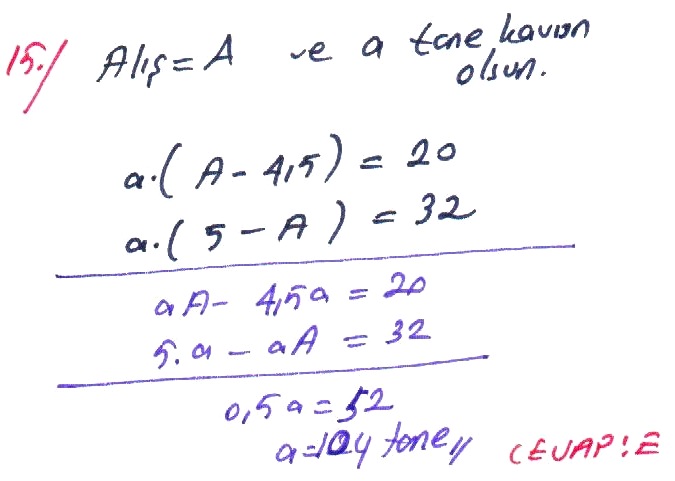 15./ Alış = A ve a tane kavun
olsun.
a.( A - 4,5 ) = 20
a.( 5 - A ) = 32
aA - 4,5a = 20
5.a - aA = 32
0,5 a = 52
a = 104 tane //
CEVAP: E